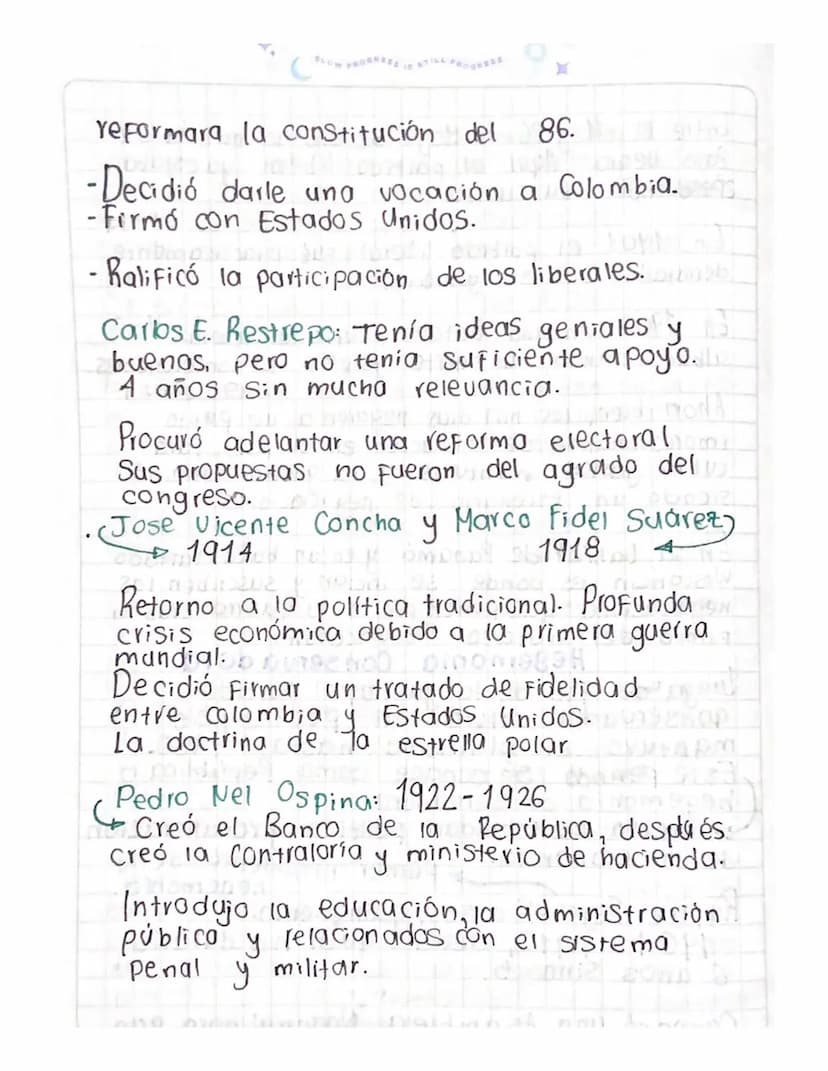 SLOW PROGRESS IS STILL PROGRESS
reformara la constitución del 86.
-Decidió darle una vocación a Colombia.
-Firmó con Estados Unidos.
- Ralificó la participación de los liberales.
Carlos E. Restrepo: Tenía ideas geniales y
buenas, pero no tenía suficiente apoyo.
4 años sin mucha relevancia.
Procuró adelantar una reforma electoral
Sus propuestas no fueron del agrado del
congreso.
. Jose Vicente Concha y Marco Fidel Suárez
1914 1918
Retorno a la política tradicional. Profunda
crisis económica debido a la primera guerra
mundial.
Decidió firmar un tratado de fidelidad
entre colombia y Estados Unidos.
La doctrina de la estrella polar
Pedro Nel Ospina: 1922-1926
Creó el Banco de la República, después
creó la Contraloría y ministerio de hacienda.
Introdujo la educación, la administración
público y relacionados con el sistema
penal y militar.